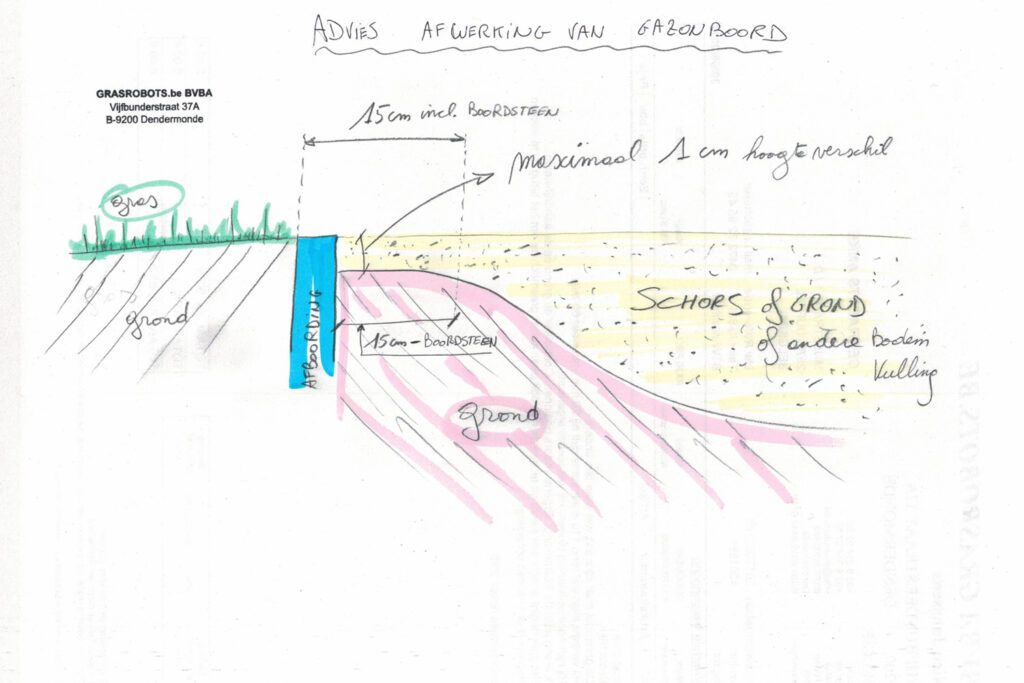 ADVIES AFWERKING VAN GAZONBOORD
GRASROBOTS.be BVBA
Vijfbunderstraat 37A
B-9200 Dendermonde
15cm incl. BOORDSTEEN
maximaal 1 cm hoogteverschil
gras
grond
AFBOORDING
15cm - BOORDSTEEN
grond
SCHORS of GROND
of andere Bodem
Vulling